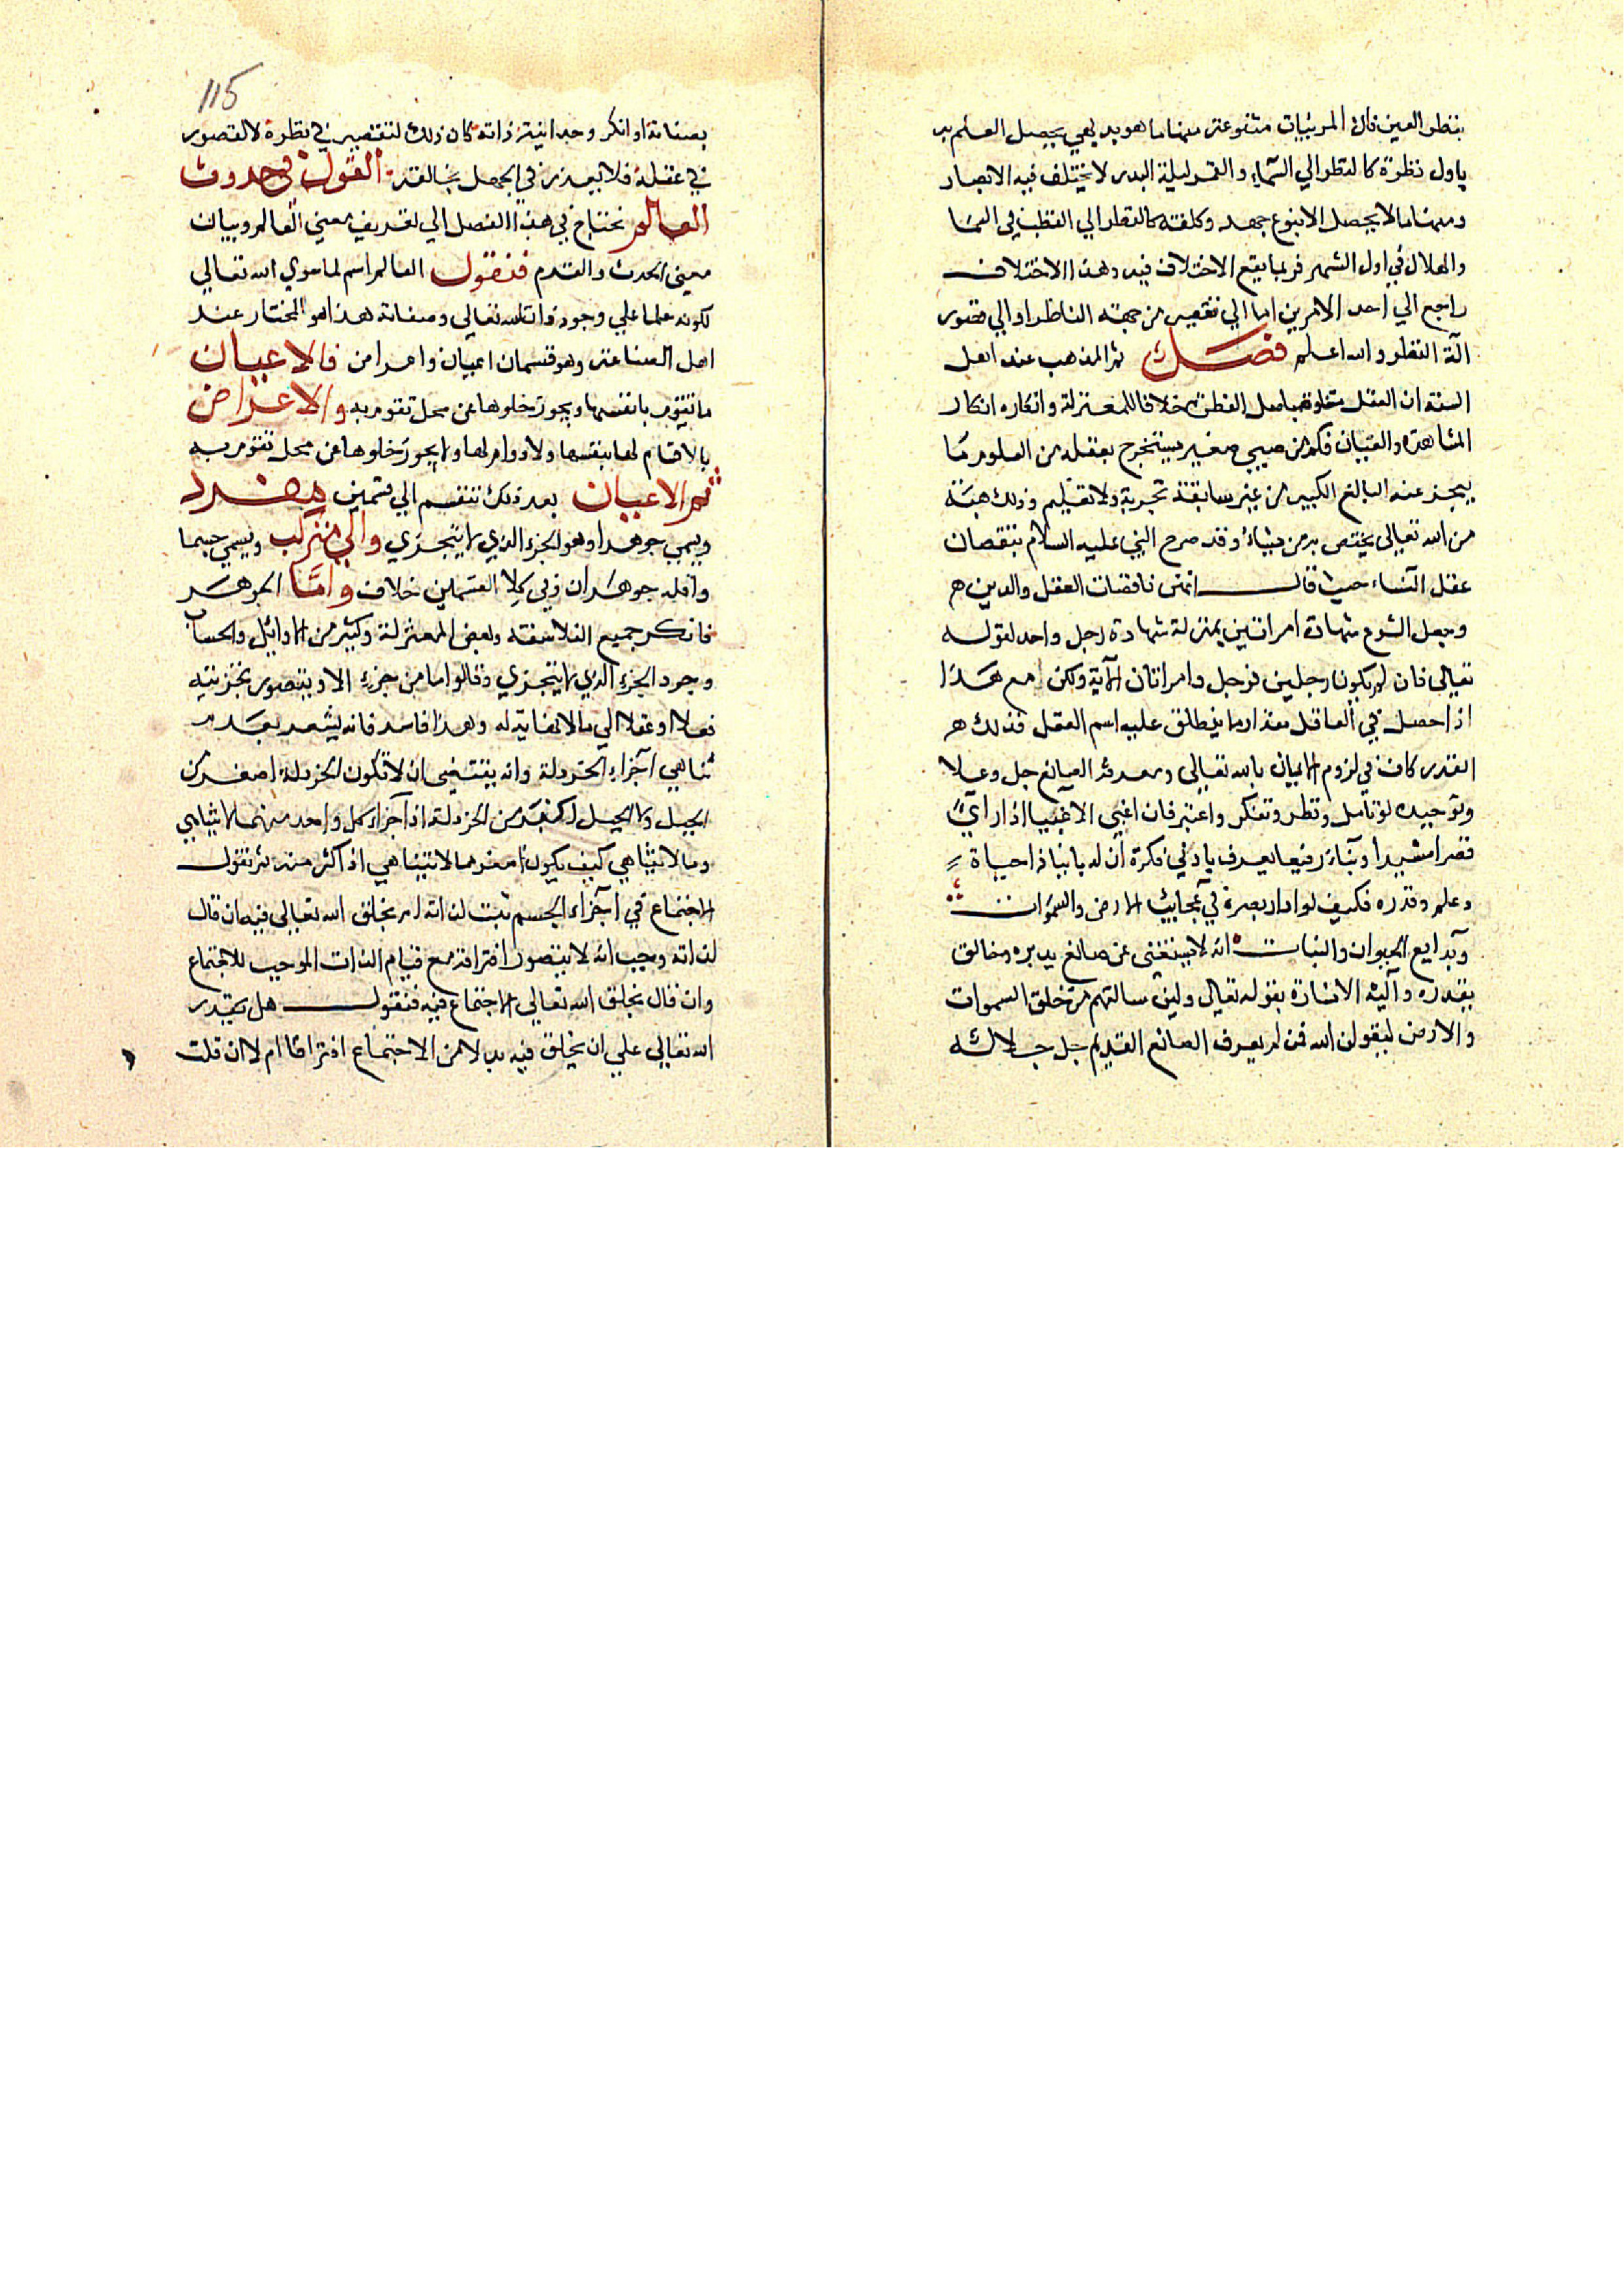 بنظر العين فان المرئيات متنوعة منها ما هو بديهي يحصل العلم به
باول نظرة كالنظر الي السماء والقمر ليلة البدر لا يختلف فيه الابصار
ومنها ما لا يحصل الا بنوع جهد وكلفة كالنظر الي القطب في السما
والهلال في اول الشهر فربما يقع الاختلاف فيه وهذا الاختلاف
راجع الي احد الامرين اما الي تقصير من جهة الناظر او الي قصور
الة النظر والله اعلم فصل ثم المذهب عند اهل
السنة ان العقل متفاوة باصل الفطرة خلافا للمعتزلة وانكاره انكار
المشاهدة والعيان فكم من صبي صغير يستخرج بعقله من العلوم ما
يعجز عنه البالغ الكبير من غير سابقة تجربة ولا تعليم وذلك هبة
من الله تعالى يختص به من يشاء وقد صرح النبي عليه السلام بنقصان
عقل النساء حيث قال انهن ناقصات العقل والدين
وجعل الشرع شهادة امراتين بمنزلة شهادة رجل واحد لقوله
تعالى فان لم يكونا رجلين فرجل وامراتان الاية ولكن مع هذا
اذا حصل في العاقل مقدار ما ينطلق عليه اسم العقل فذلك
القدر كاف في لزوم الايمان بالله تعالى ومعرفة الصانع جل وعلا
وتوحيده لو تامل ونظر وتفكر واعتبر فان اغبى الاغبيا اذا راي
قصرا مشيدا وبناء رفيعا يعرف بادني فكرة ان له بانيا ذا حياة
وعلم وقدره فكيف لو ادار بصره في عجايب الارض والسموات
وبدايع الحيوان والنبات انه لا يستغنى عن صانع يدبره وخالق
يقدره واليه الاشارة بقوله تعالى ولين سالتهم من خلق السموات
والارض ليقولن الله فمن لم يعرف الصانع القديم جل جلاله
115
بصفاته او انكر وحدانية ذاته كان ذلك لتقصير في نظره لا لقصور
في عقله فلا يعذر في الجهل بخالقه القول في حدوث
العالم نحتاج في هذا الفصل الي تعريف معني العالم وبيان
معنى الحدث والقدم فنقول العالم اسم لما سوي الله تعالي
لكونه علما علي وجود ذات الله تعالي وصفاته هذا هو المختار عند
اهل الصناعة وهو قسمان اعيان واعراض فالاعيان
ما تقوم بانفسها ويجوز خلوها عن محل تقوم به والاعراض
ما لا قيام لها بنفسها ولا دوام لها ولا يجوز خلوها عن محل تقوم به
ثم الاعيان بعد ذلك تنقسم الي قسمين مفرد
ويسمي جوهرا وهو الجزء الذي لا يتجزي والي متركب ويسمي جسما
واقله جوهران وفي كلا القسمين خلاف واما الجوهر
فانكر جميع الفلاسفة وبعض المعتزلة وكثير من الاوايل والحساب
وجود الجزء الذي لا يتجزي وقالوا ما من جزء الا ويتصور تجزئته
فعلا او عقلا الي ما لا نهاية له وهذا فاسد فانه يشعر بعدم
تناهي اجزاء الخردلة وانه يقتضى ان لا تكون الخردلة اصغر من
الجبل ولا الجبل اكبر من الخردلة اذ اجزاء كل واحد منهما لا يتناهي
وما لا يتناهي كيف يكون اصغر مما لا يتناهي اذ اكثر منه ثم نقول
الاجتماع في اجزاء الجسم ثبت لذاته ام بخلق الله تعالى فيه ان قال
لذاته وجب انه لا يتصور افتراقه مع قيام الذات الموجب للاجتماع
وان قال بخلق الله تعالي الاجتماع فيه فنقول هل يقدر
الله تعالي علي ان يخلق فيه بدلا من الاجتماع افتراقا ام لا ان قلت